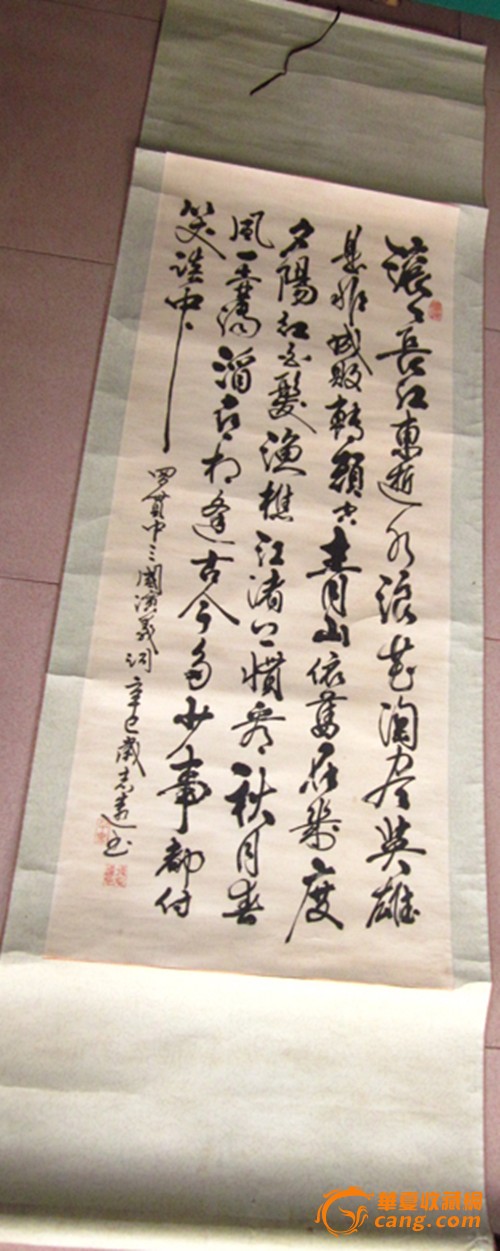 滚々長江東逝水浪花淘尽英雄
是非成敗轉頭空青山依舊在幾度
夕陽红白髮漁樵江渚上慣看秋月春
風一壺濁酒喜相逢古今多少事都付
笑談中
罗貫中三國演義词辛巳志书
華夏收藏網
cang.com